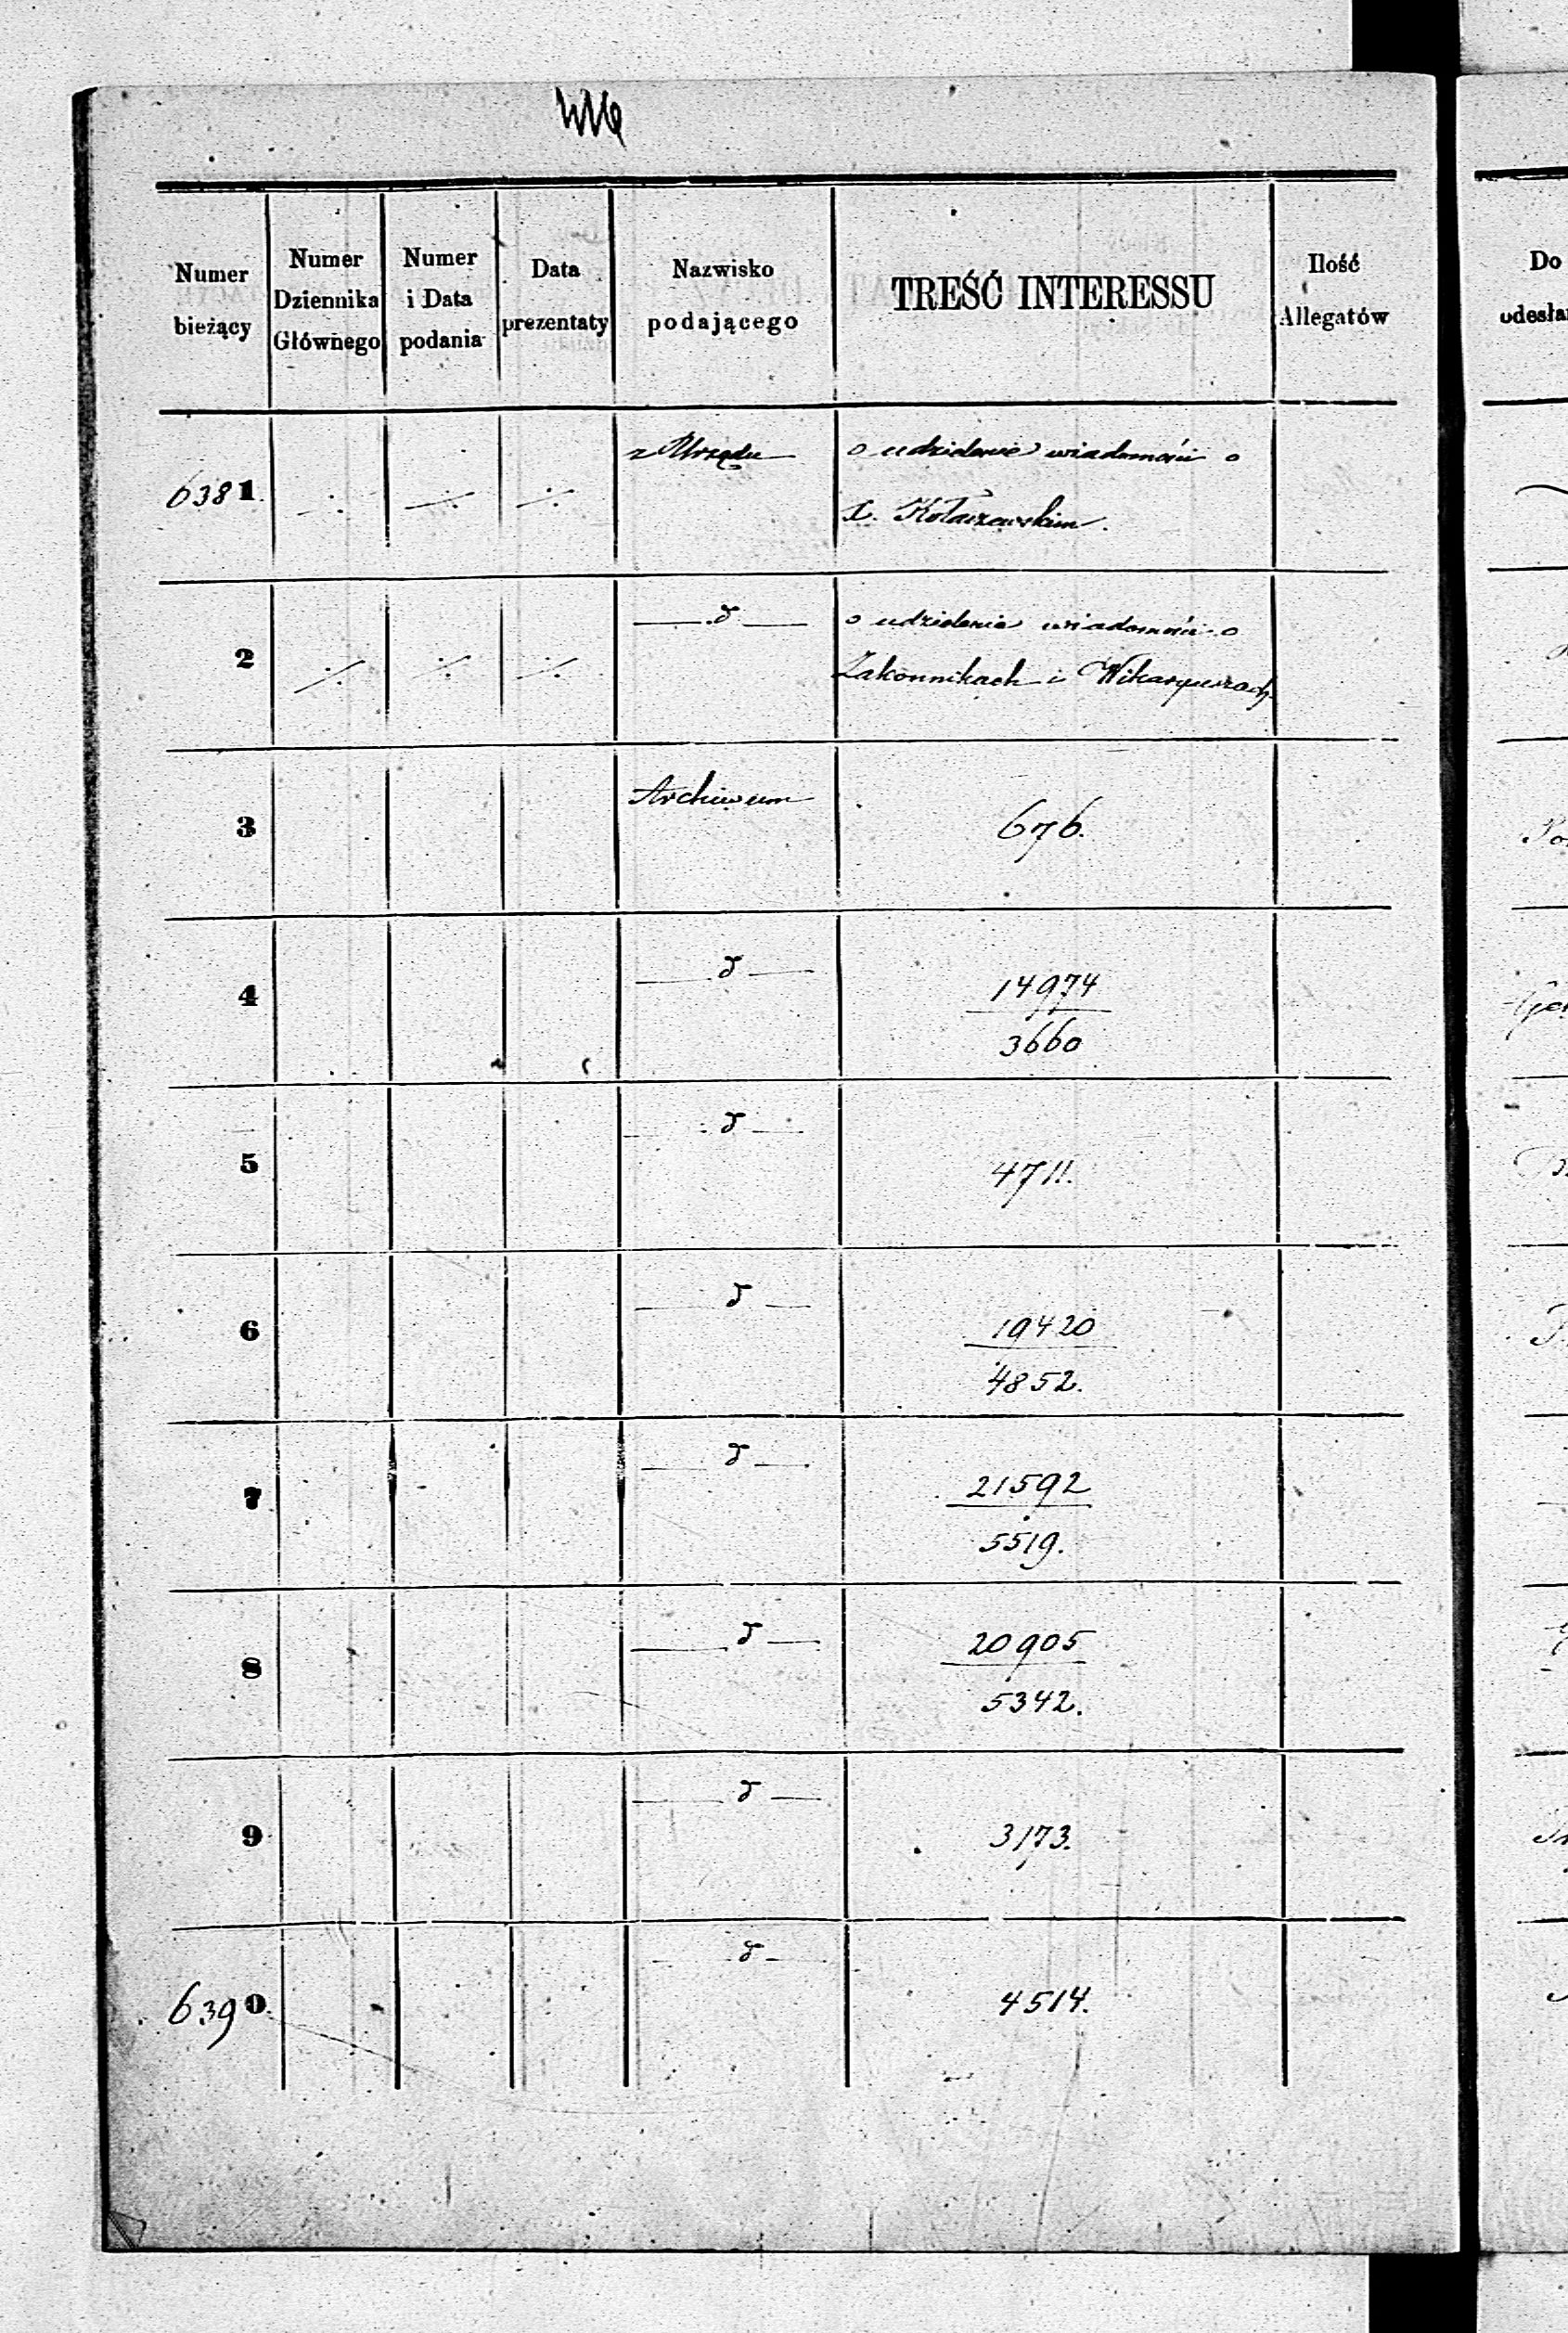 Numer bieżący
Numer Dziennika Głównego
Numer i Data podania
Data prezentaty
Nazwisko podającego
TREŚĆ INTERESSU
Ilość Allegatów
Do
6381. ·/. ·/. ·/. z Urzędu o udzielenie wiadomości o
X. Kołaczewskim.
2 ·/. ·/. ·/. — d — o udzielenie wiadomości o
Zakonnikach i Wikaryuszach
3 Archiwum 676.
4 — d — 14974
3660
5 — d — 4711.
6 — d — 19420
4852.
7 — d — 21592
5519.
8 — d — 20905
5342.
9 — d — 3173.
6390. — d — 4514.